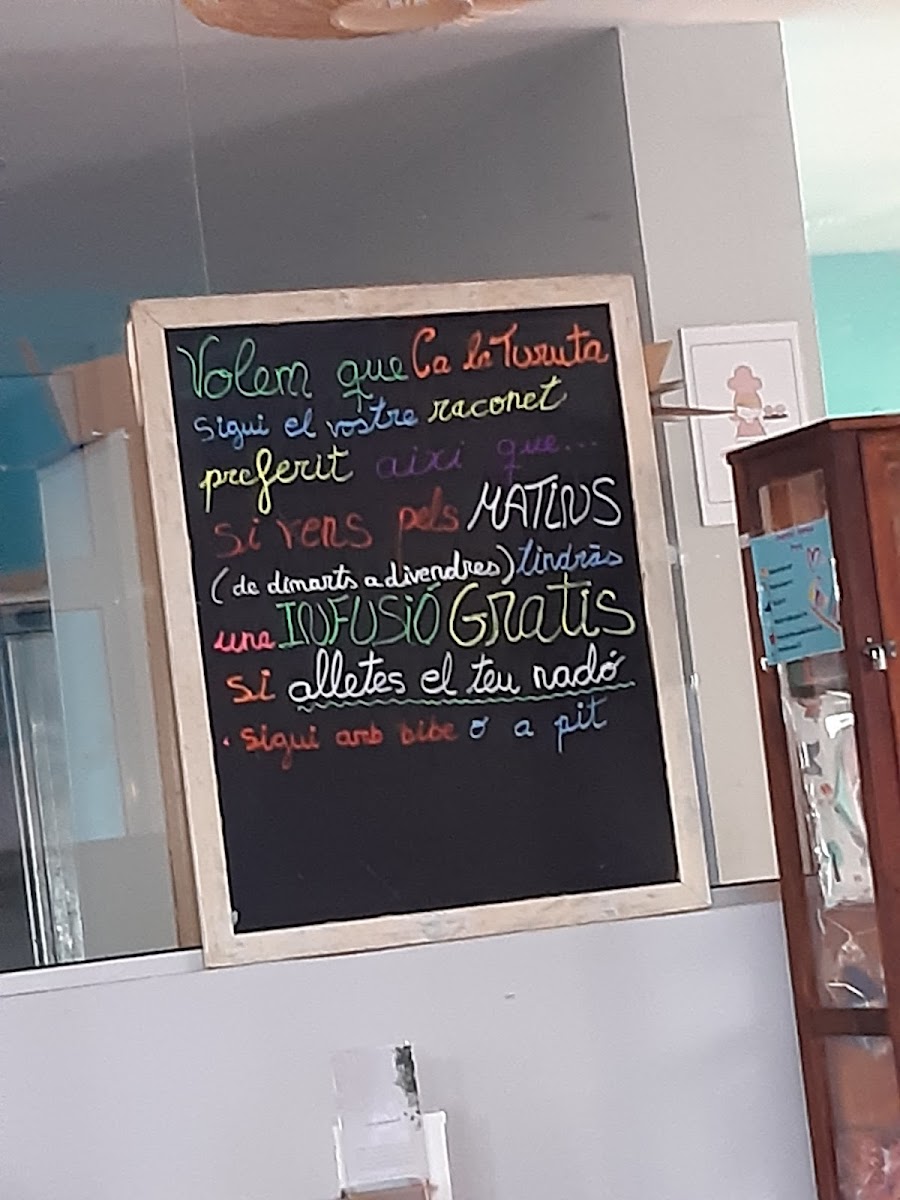 Volem que Ca la Turuta
sigui el vostre raconet
preferit aixi que...
si vens pels MATINS
(de dimarts a divendres) tindràs
una INFUSIÓ GRATIS
si alletes el teu nadó
• Sigui amb bibe o a pit